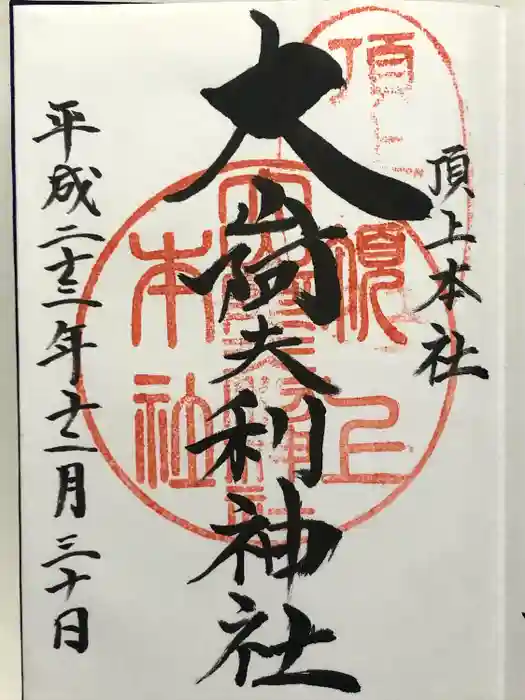 頂上本社
大山阿夫利神社
平成二十三年十二月三十日
頂上
本社
頂上